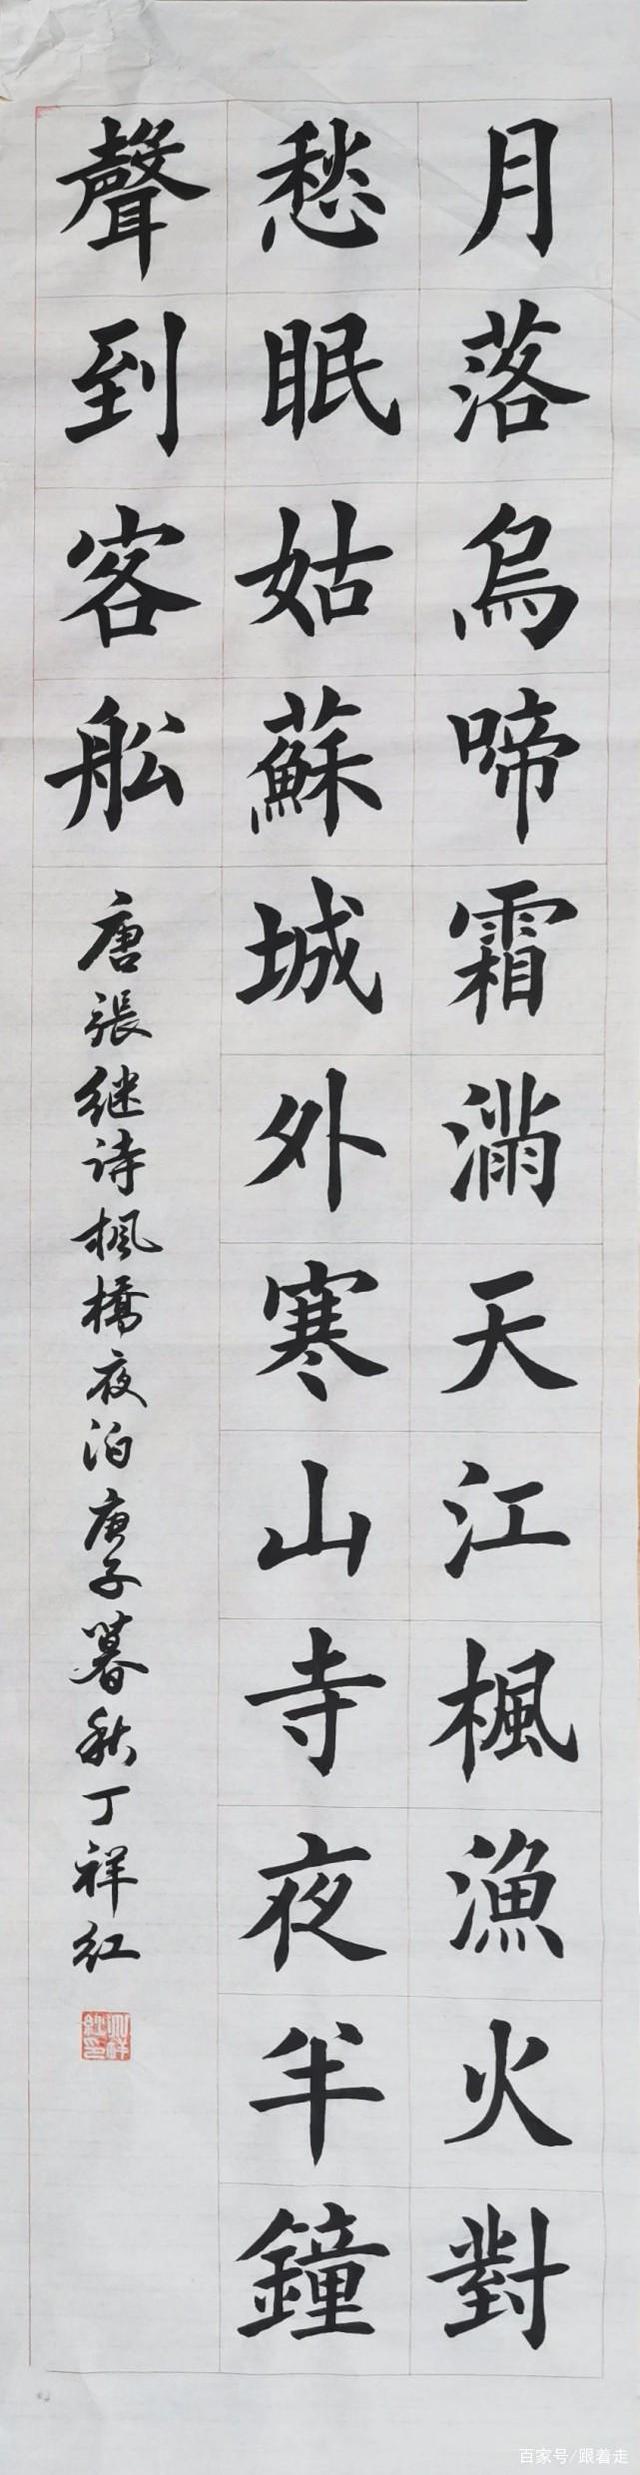 月落烏啼霜滿天江楓漁火對
愁眠姑蘇城外寒山寺夜半鐘
聲到客船
唐張继诗楓橋夜泊庚子暮秋丁祥红
百家号/跟着走